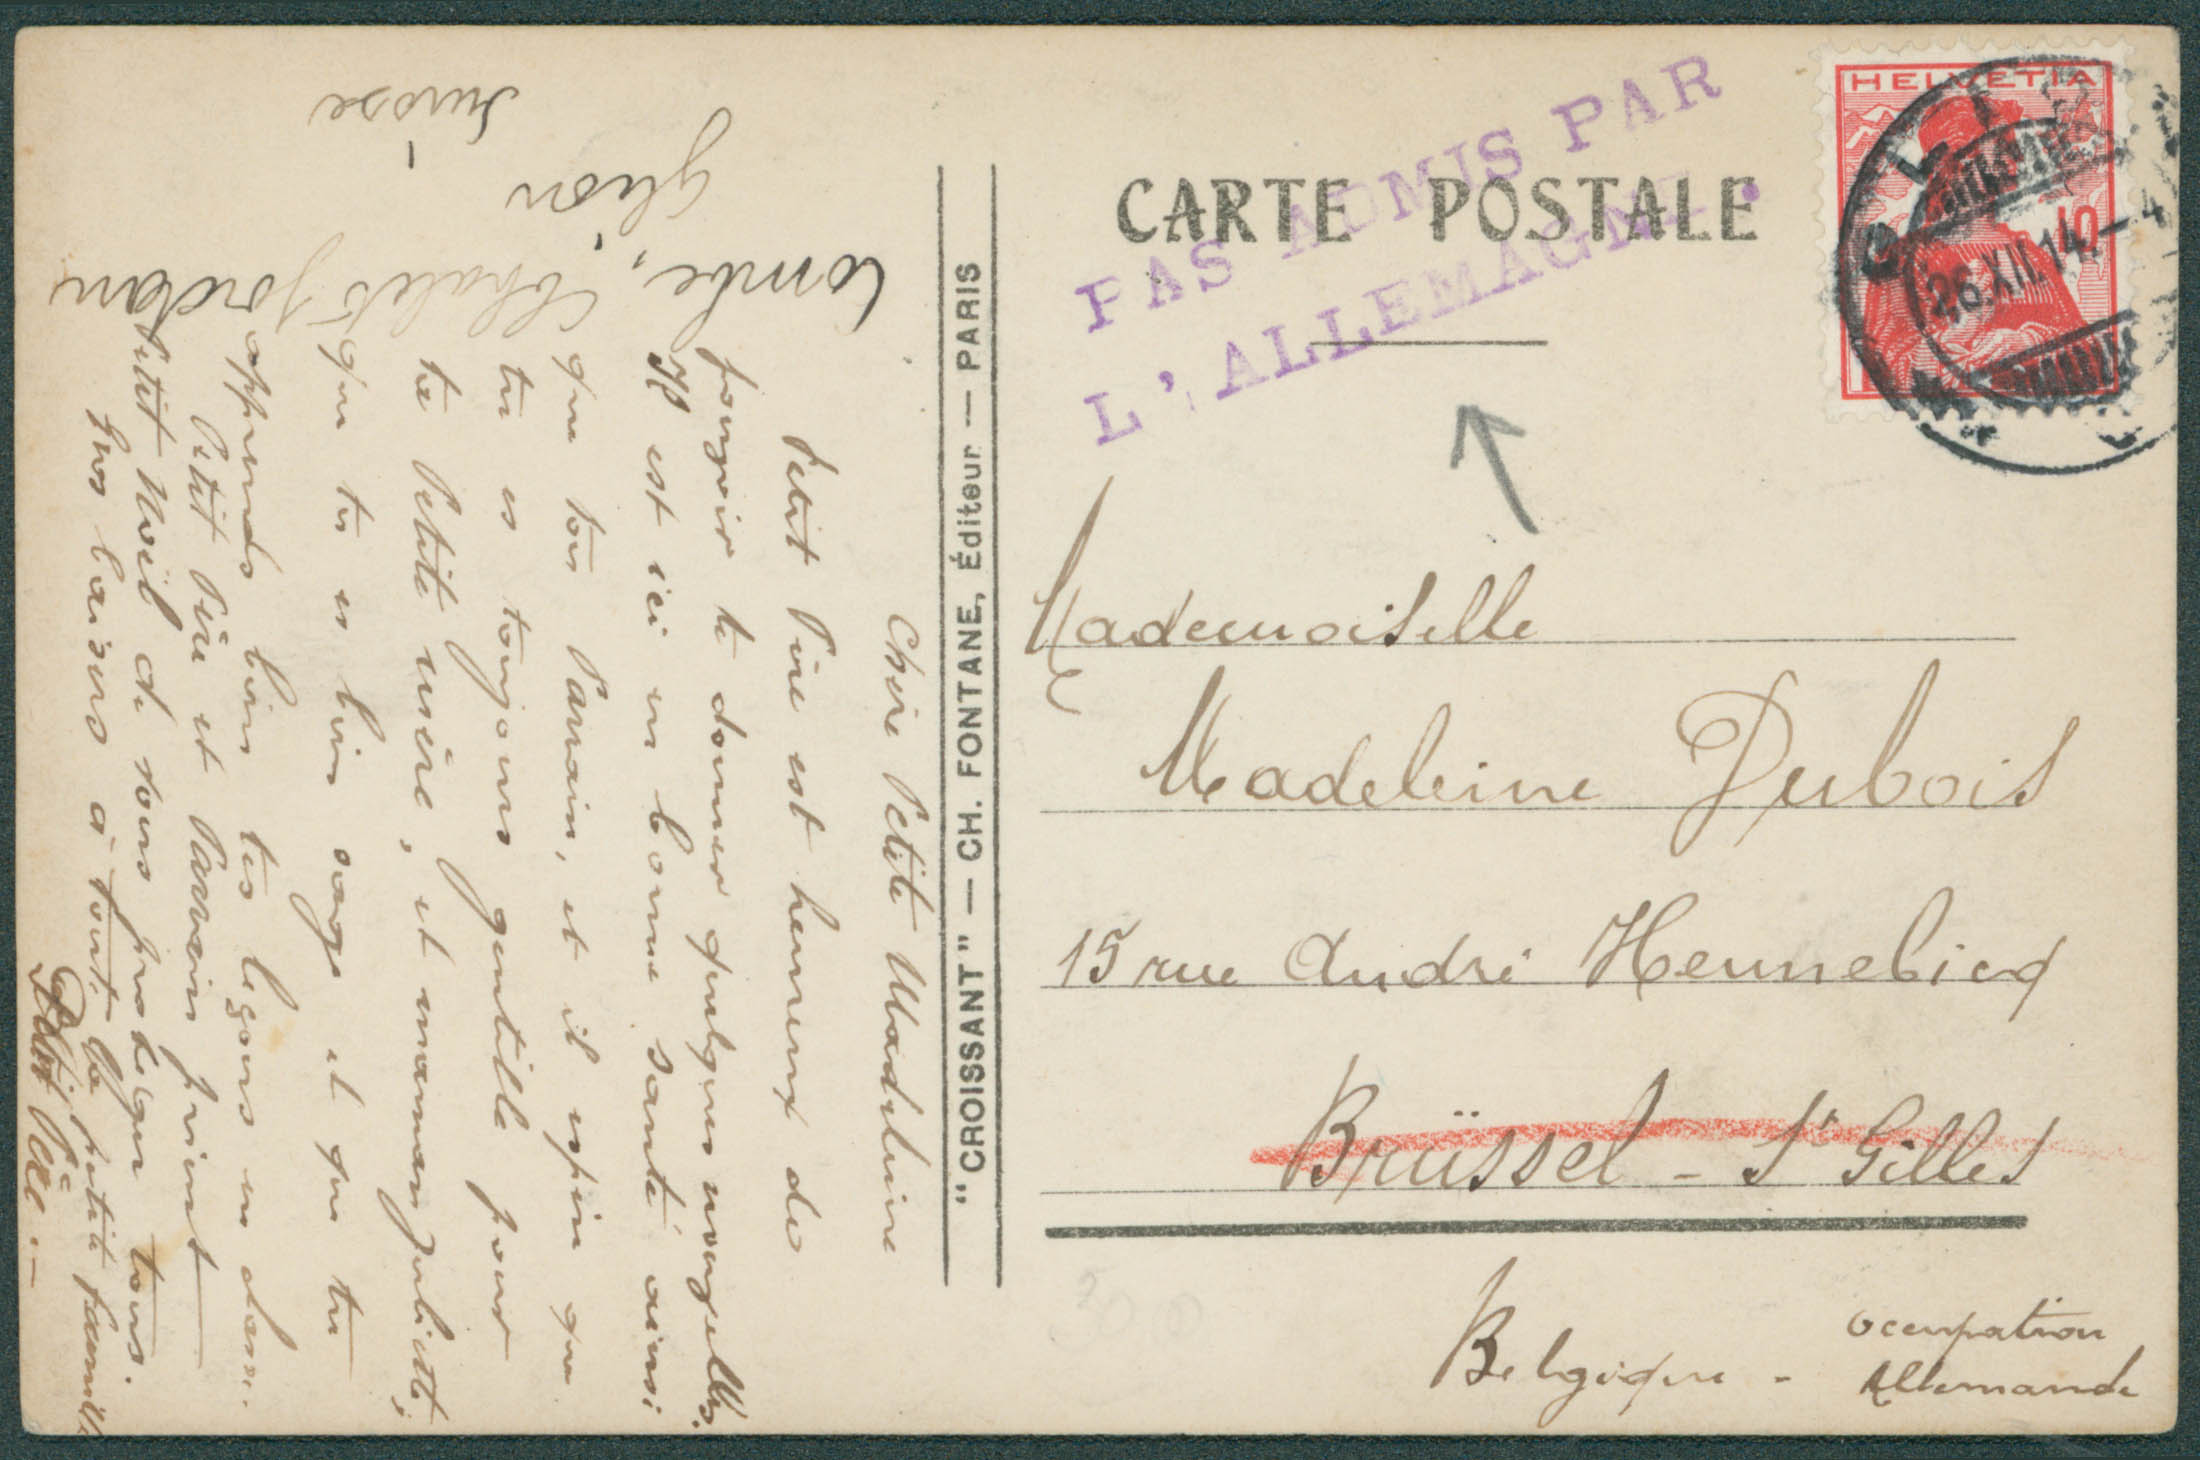 CARTE POSTALE
PAS ADMIS PAR
L'ALLEMAGNE.
HELVETIA
10
GLION
26.XII.14.-4
"CROISSANT" — CH. FONTANE, Éditeur — PARIS
Mademoiselle
Madeleine Dubois
15 rue André Hennebicq
Brüssel - St Gilles
Belgique -
occupation
Allemande
Combe,
Glion
-
Suisse
Chalet Jordan
Chère Petite Madeleine
Petit Père est heureux de
pouvoir te donner quelques nouvelles.
Il est ici en bonne santé ainsi
que ton Parrain, et il espère que
tu es toujours gentille pour
ta Petite mère, et maman Juliette,
que tu es bien sage et que tu
apprends bien tes leçons en classe.
Petit Père et Parrain prient
Petit Noël de vous protéger tous.
Gros baisers à toute la petite famille
Petit Père.-